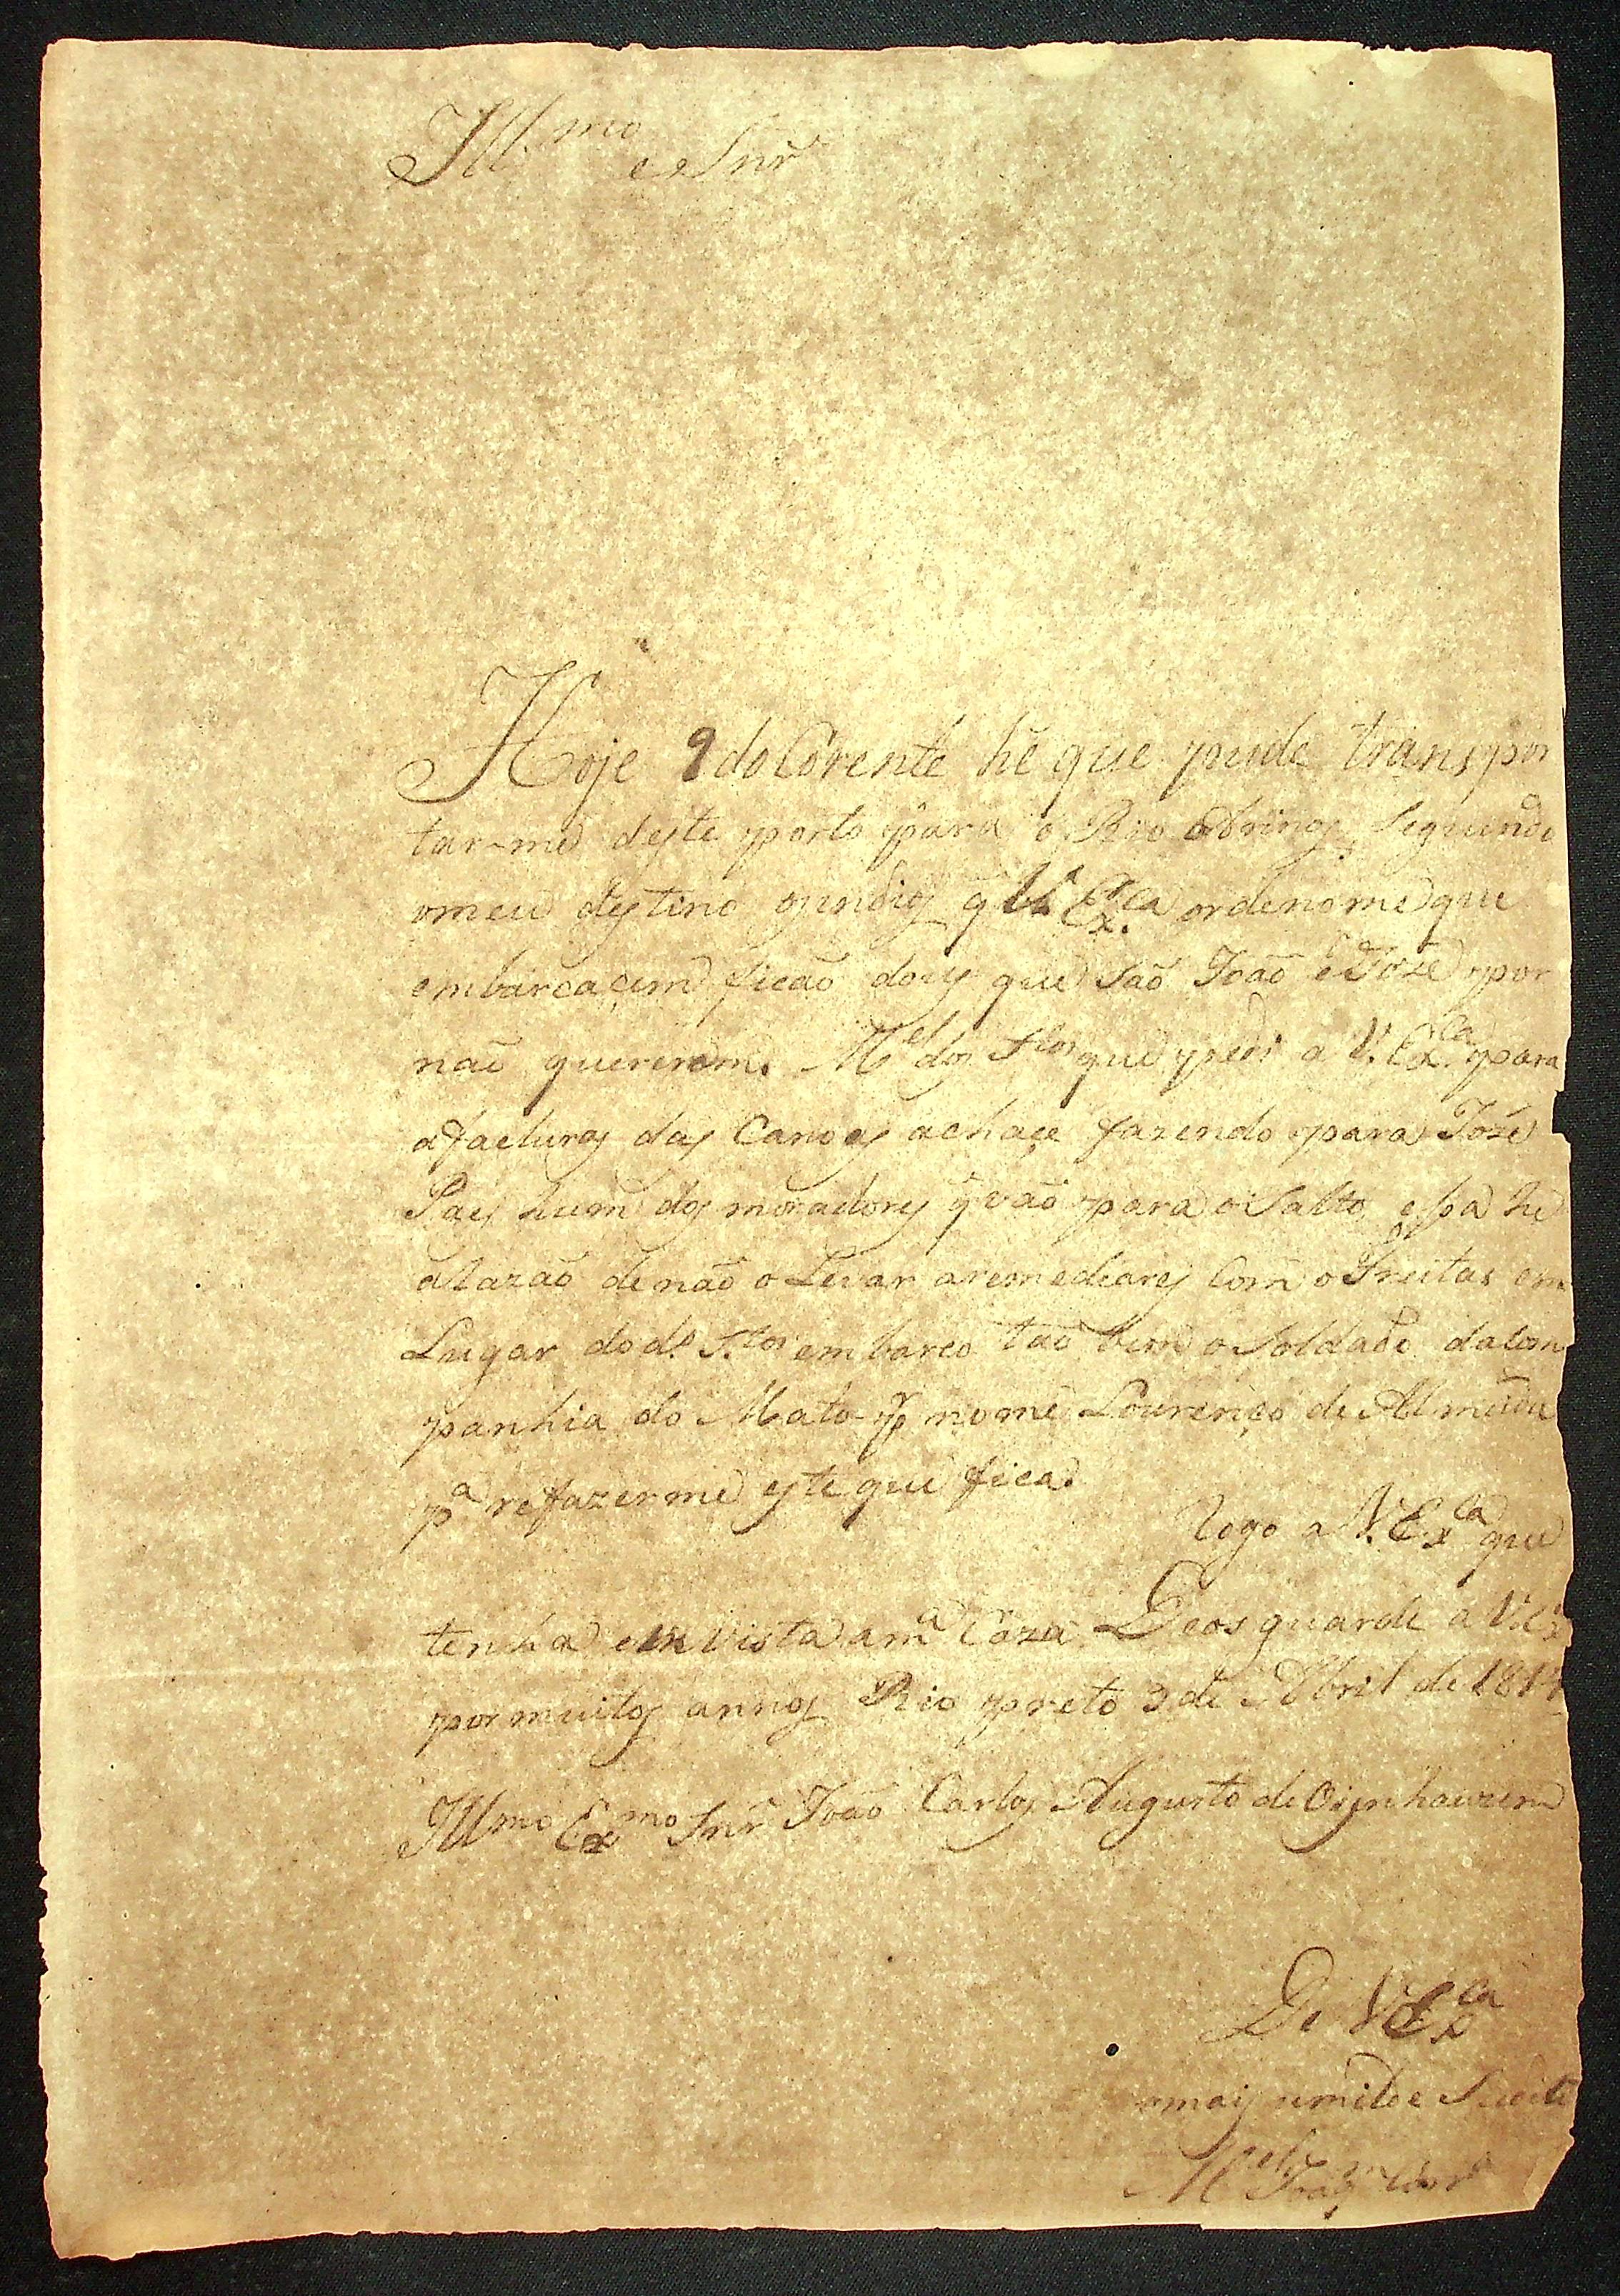 Ill.mo e Snr̃
Hoje 9 do Corente hé que pude transpor
tar-me deste porto para o Rio Arinos Segundo
omeu destino os indios q̃ V. Ex.ca ordenome que
embarcaçem ficão dois que São João e Joze por
não quererem. M.el dos S.tos que pedi a V. Ex.ca para
afacturas das Canoas achaçe fazendo para Joze
Paes hum dos moradores q̃ vão para o Salto, essa he
a Razão de não o Levar aremediarej Com o Freitas em
Lugar do d.o S.tos embarco tão bem o Soldado da Com
panhia do Mato p.r nome Lourenço de Almeida
p.a refazerme este que fica.
Rogo a V. Ex.ca que
tenha em vista a m.a Caza. Deos guarde a V. Ex
por muitos annos Rio preto 9 de Abril de 181
Ill.mo Ex.mo Snr̃ João Carlos Augusto de Oijenhauzem
De V. Ex.ca
omais umilde Sudito
M.el Joaq.m Corr.a